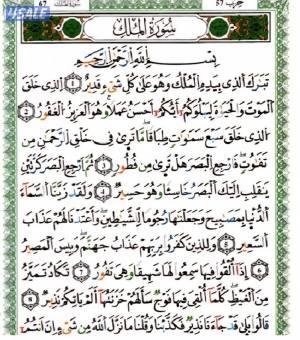 حزب ٥٧
سورة الملك
٦٧
سورة الملك
بسم الله الرحمن الرحيم
تبرك الذي بيده الملك وهو على كل شيء قدير ١ الذي خلق
الموت والحيوة ليبلوكم أيكم أحسن عملا وهو العزيز الغفور ٢
الذي خلق سبع سموت طباقا ما ترى في خلق الرحمن من
تفوت فارجع البصر هل ترى من فطور ٣ ثم ارجع البصر كرتين
ينقلب إليك البصر خاسئا وهو حسير ٤ ولقد زينا السماء
الدنيا بمصبيح وجعلنها رجوما للشيطين وأعتدنا لهم عذاب
السعير ٥ وللذين كفروا بربهم عذاب جهنم وبئس المصير
٦ إذا ألقوا فيها سمعوا لها شهيقا وهي تفور ٧ تكاد تميز
من الغيظ كلما ألقي فيها فوج سألهم خزنتها ألم يأتكم نذير ٨
قالوا بلى قد جاءنا نذير فكذبنا وقلنا ما نزل الله من شيء إن أنتم